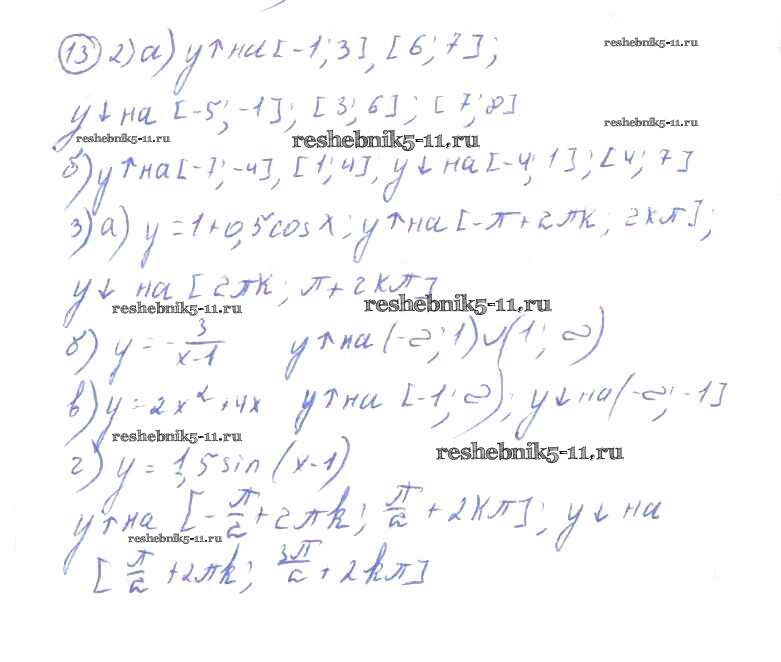 reshebnik5-11.ru
(13) 2) а) y↑ на [-1; 3], [6; 7];
y↓ на [-5; -1]; [3; 6]; [7; 8]
reshebnik5-11.ru
reshebnik5-11.ru
reshebnik5-11.ru
б) y↑ на [-7; -4], [1; 4]; y↓ на [-4; 1]; [4; 7]
3) а) y = 1+0,5cosx; y↑ на [-π+2πk; 2kπ];
y↓ на [2πk; π+2kπ]
reshebnik5-11.ru
reshebnik5-11.ru
б) y = -3/(x-1) y↑ на (-∞; 1)∪(1; ∞)
в) y = 2x²+4x y↑ на [-1; ∞); y↓ на (-∞; -1]
reshebnik5-11.ru
reshebnik5-11.ru
г) y = 1,5sin(x-1)
y↑ на [-π/2+2πk; π/2+2kπ]; y↓ на
reshebnik5-11.ru
[π/2+2πk; 3π/2+2kπ]